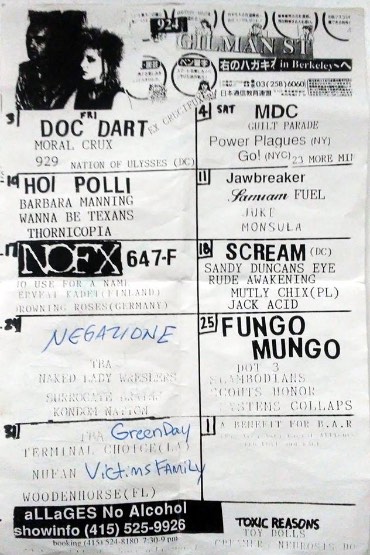 924
GILMAN ST
右のハガキ
in Berkeleyへ
ペン字
☎03(258)6060
日本通信教育連盟
3 FRI
DOC DART
EX CRUCIFUCKS
MORAL CRUX
929 NATION OF ULYSSES (DC)
4 SAT MDC
GUILT PARADE
Power Plagues (NY)
Go! (NYC) 23 MORE MIN
HOI POLLI
BARBARA MANNING
WANNA BE TEXANS
THORNICOPIA
11 Jawbreaker
Samiam FUEL
JUKE
MONSULA
17 NOFX 647-F
NO USE FOR A NAME
(FINLAND)
DROWNING ROSES(GERMANY)
18 SCREAM (DC)
SANDY DUNCANS EYE
RUDE AWAKENING
MUTLY CHIX(PL)
JACK ACID
24 NEGAZIONE
TBA
NAKED LADY WRESLERS
SURROGATE
KONDOM NATION
25 FUNGO
MUNGO
DOT 3
SLAMBODIANS
SCOUTS HONOR
SYSTEMS COLLAPS
31 TBA GreenDay
TERMINAL CHOICE(LA)
Victims Family
WOODENHORSE(FL)
1 A BENEFIT FOR B.A.R
aLLaGES No Alcohol
showinfo (415) 525-9926
booking (415) 524-8180 7:30-9 pm
TOXIC REASONS
TOY DOLLS
NEUROSIS